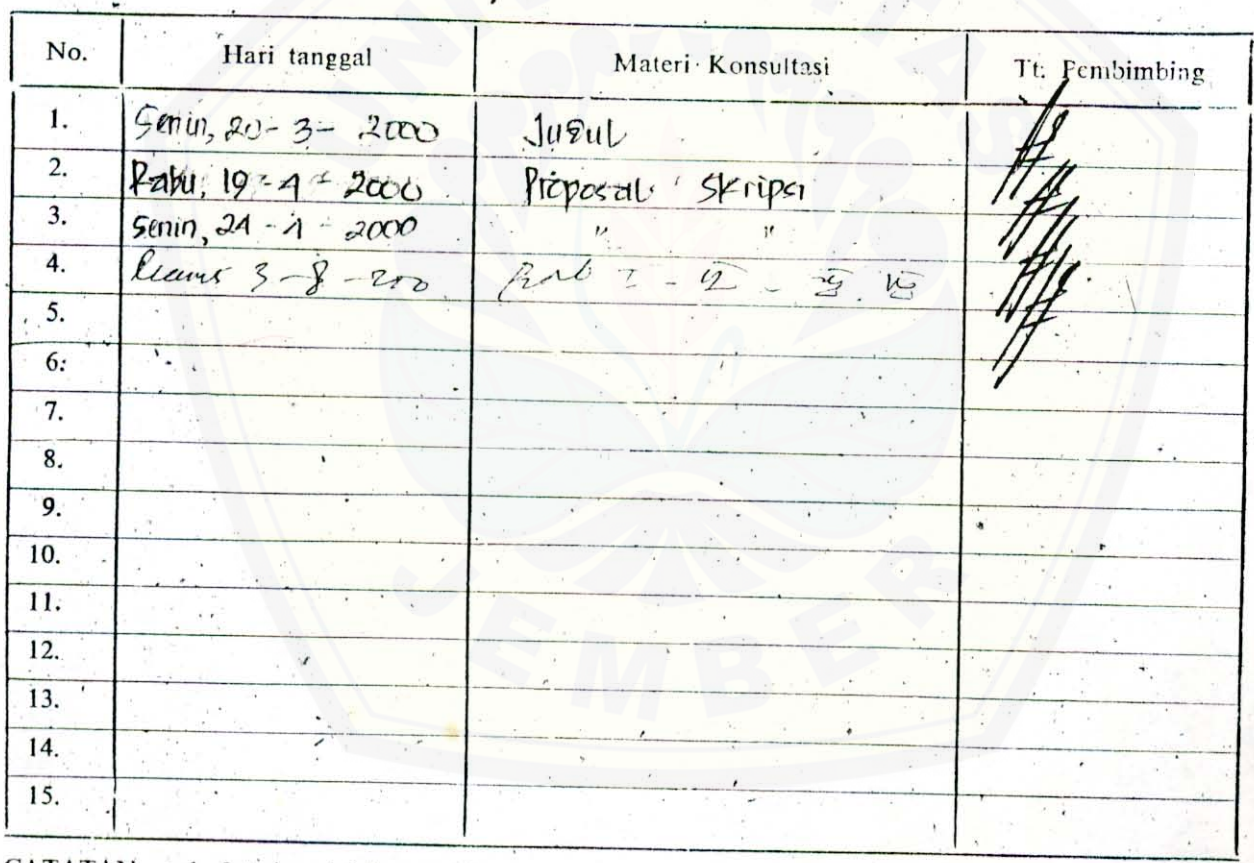 No. Hari tanggal Materi Konsultasi Tt. Pembimbing
1. Senin, 20-3-2000 Judul
2. Rabu, 19-4-2000 Proposal Skripsi
3. Senin, 24-4-2000 " "
4. Kamis 3-8-200 Bab I - II - III.
5.
6.
7.
8.
9.
10.
11.
12.
13.
14.
15.
JEMBER
CATATAN